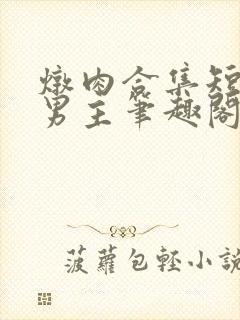 燉肉合集短
男主筆趣閣
菠蘿包輕小說